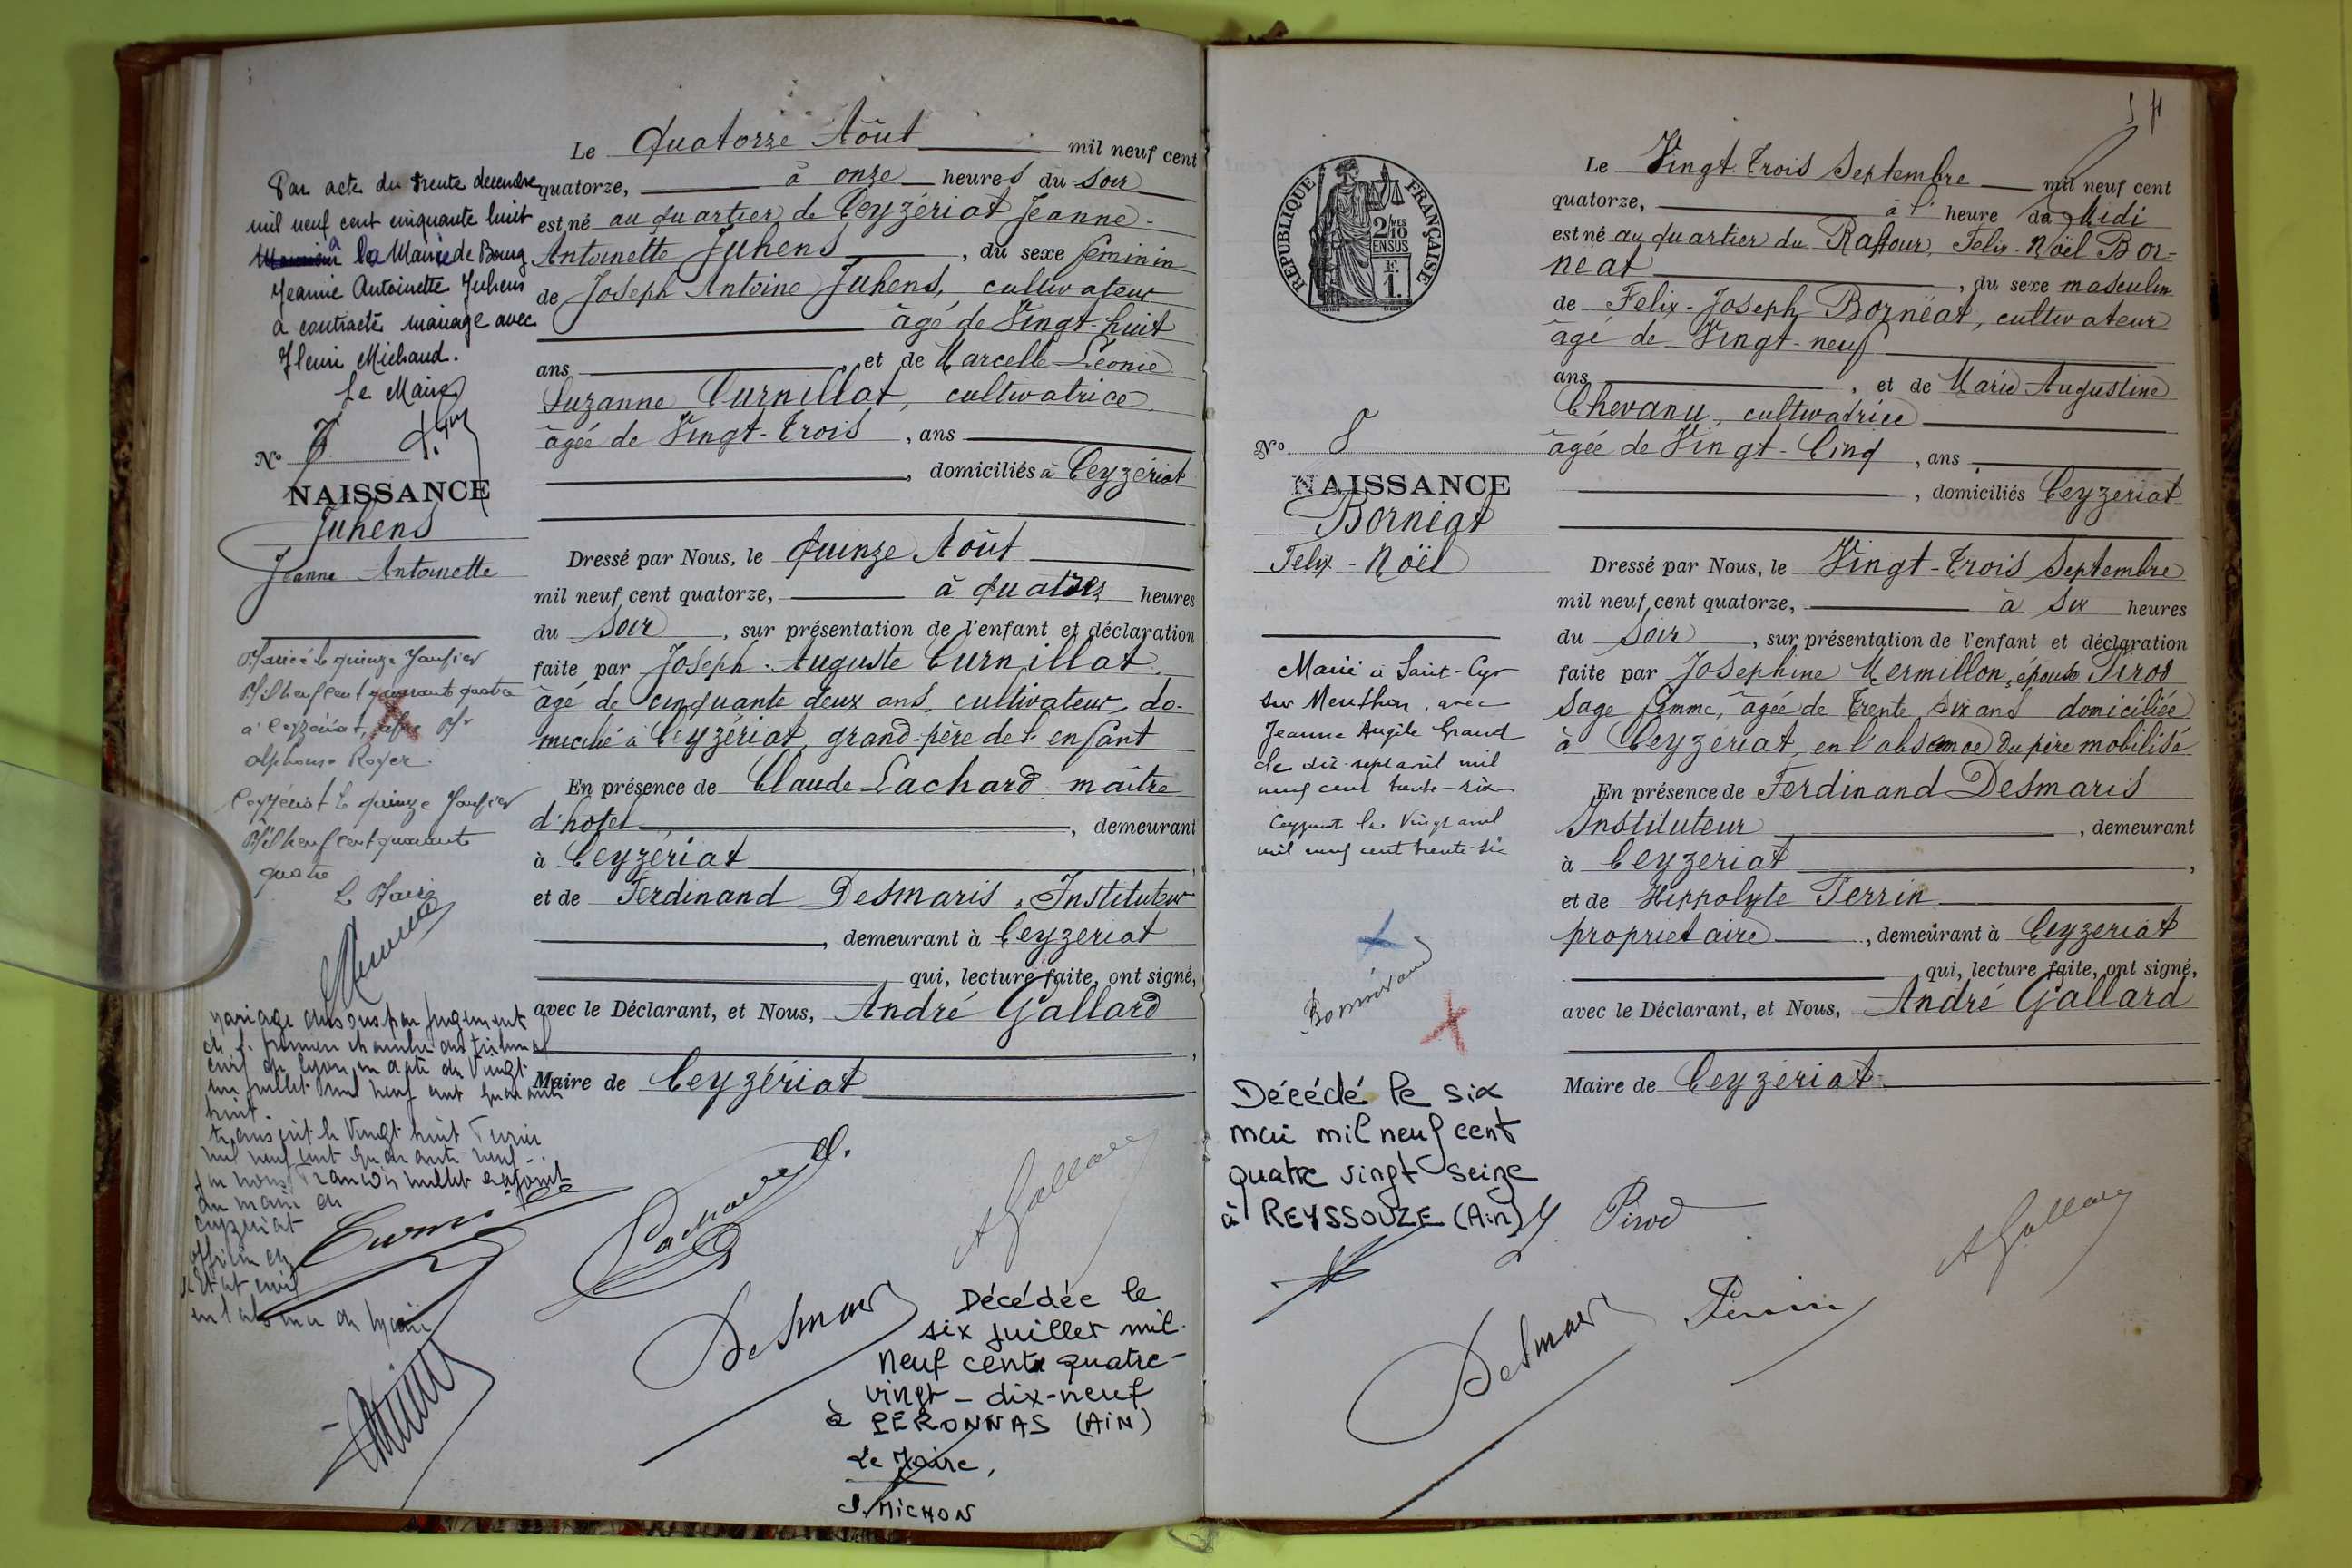 Le Quatorze Août mil neuf cent
quatorze, à onze heures du soir
est né au quartier de Ceyzériat Jeanne-
Antoinette Juhens, du sexe féminin
de Joseph Antoine Juhens, cultivateur
âgé de Vingt-huit
ans et de Marcelle Léonie
Suzanne Curnillat, cultivatrice
âgée de Vingt-Trois, ans
, domiciliés à Ceyzériat
Dressé par Nous, le Quinze Août
mil neuf cent quatorze, à quatre heures
du Soir, sur présentation de l'enfant et déclaration
faite par Joseph-Auguste Curnillat
âgé de cinquante deux ans, cultivateur, do-
micilié à Ceyzériat, grand-père de l'enfant
En présence de Claude Lachard, maître
d'hotel, demeurant
à Ceyzériat,
et de Ferdinand Desmaris, Instituteur
, demeurant à Ceyzeriat
qui, lecture faite, ont signé,
avec le Déclarant, et Nous, André Gallard
,
Maire de Ceyzériat
Par acte du trente decembre
mil neuf cent cinquante huit
à la Mairie de Bourg
Jeanne Antoinette Juhens
a contracté mariage avec
Henri Michaud.
Le Maire
No 7
NAISSANCE
Juhens
Jeanne Antoinette
Mariée le quinze Janvier
Mil neuf cent quarante quatre
à Ceyzériat, Mr
Alphonse Royer.
Ceyzériat le quinze Janvier
Mil neuf cent quarante
quatre
Le Maire
Mariage dissous par jugement
de la première chambre du tribunal
civil de Lyon en date du Vingt
un juillet mil neuf cent quarante
huit.
transcrit le Vingt huit
mil neuf cent quarante neuf
par nous François Millet adjoint
au maire de
Ceyzeriat
officier de
l'état civil
en l'absence du Maire
Lachard
A Gallard
Desmaris
Décédée le
six juillet mil
neuf cent quatre-
vingt-dix-neuf
à PERONNAS (AiN)
Le Maire,
J. MICHON
54
REPUBLIQUE FRANÇAISE
2/10 EN SUS
F. 1.
Le Vingt-Trois Septembre mil neuf cent
quatorze, à l' heure de Midi
est né au quartier du Raffour, Felix-Noël Bor-
néat, du sexe masculin
de Felix-Joseph Bornéat, cultivateur
âgé de Vingt-neuf
ans, et de Marie Augustine
Chevanu, cultivatrice
âgée de Vingt-Cinq, ans
, domiciliés Ceyzeriat
Dressé par Nous, le Vingt-Trois Septembre
mil neuf cent quatorze, à Six heures
du Soir, sur présentation de l'enfant et déclaration
faite par Josephine Mermillon, épouse Pirod
Sage femme, âgée de Trente Six ans domiciliée
à Ceyzeriat, en l'absence du père mobilisé
En présence de Ferdinand Desmaris
Instituteur, demeurant
à Ceyzeriat,
et de Hippolyte Perrin
proprietaire, demeurant à Ceyzeriat
qui, lecture faite, ont signé,
avec le Déclarant, et Nous, André Gallard
Maire de Ceyzériat
No 8
NAISSANCE
Bornéat
Felix-Noël
Marié à Saint-Cyr
sur Menthon, avec
Jeanne Angèle Grand
le dix-sept avril mil
neuf cent trente-six
Ceyzeriat le Vingt avril
mil neuf cent trente-six
Décédé le six
mai mil neuf cent
quatre vingt seize
à REYSSOUZE (Ain)
Pirod
A Gallard
Desmaris
Perrin